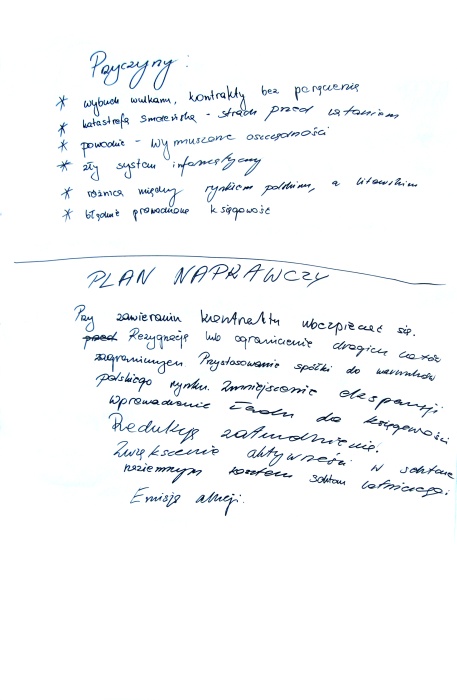 Przyczyny:
* wybuch wulkanu, kontrakty bez poręczenia
* katastrofa smoleńska - strach przed lataniem
* powodzie - wymuszone oszczędności
* zły system informatyczny
* różnica między rynkiem polskim, a litewskim
* błędnie prowadzona księgowość
PLAN NAPRAWCZY
Przy zawieraniu kontraktu ubezpieczać się.
Rezygnacja lub ograniczenie drogich lotów
zagranicznych. Przystosowanie spółki do warunków
polskiego rynku. Zmniejszenie ekspansji
Wprowadzenie ładu do księgowości
Redukcja zatrudnienia.
Zwiększenie aktywności w sektorze
naziemnym kosztem sektora lotniczego.
Emisja akcji.